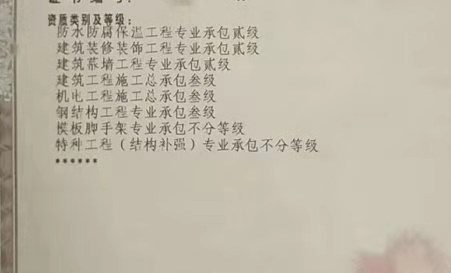 资质类别及等级：
防水防腐保温工程专业承包贰级
建筑装修装饰工程专业承包贰级
建筑幕墙工程专业承包贰级
建筑工程施工总承包叁级
机电工程施工总承包叁级
钢结构工程专业承包叁级
模板脚手架专业承包不分等级
特种工程（结构补强）专业承包不分等级
******